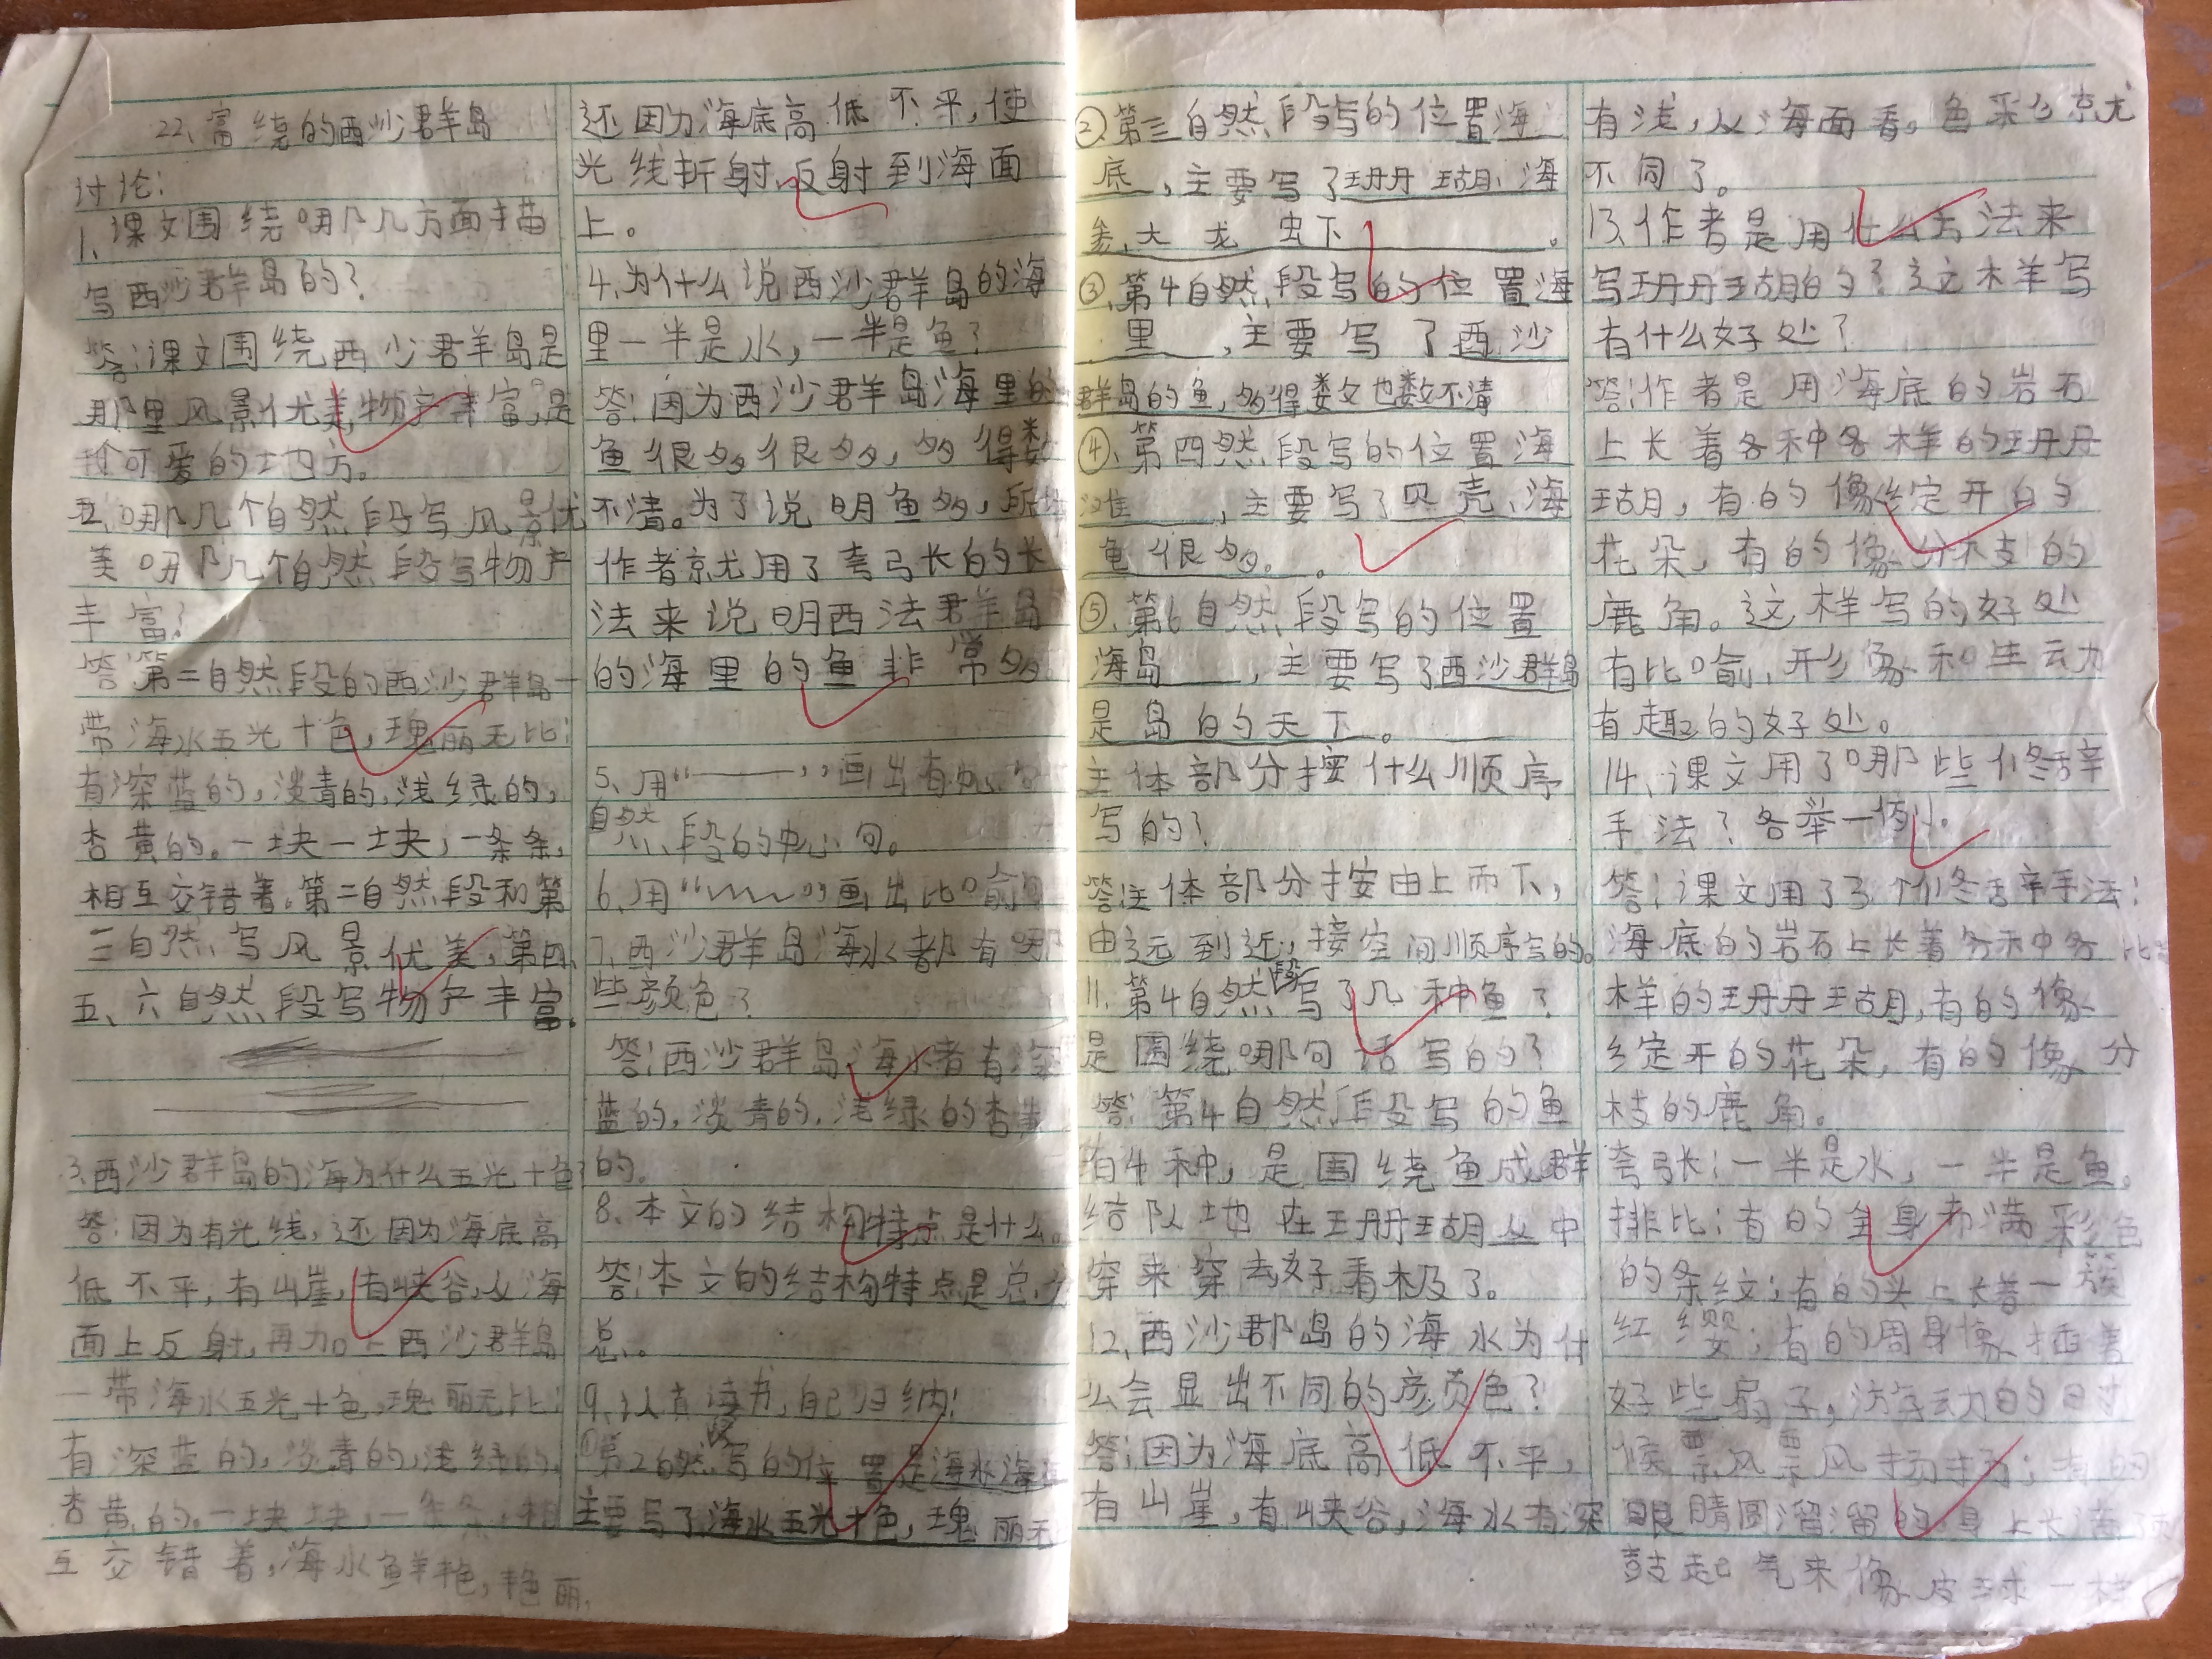 22、富绕的西沙群岛
讨论：
1、课文围绕哪几方面描
写西沙群岛的？
答：课文围绕西沙群岛是
那里风景优美，物产丰富，是
个可爱的地方。
哪几个自然段写风景优
美哪几个自然段写物产
丰富？
答：第二自然段的西沙群岛一
带海水五光十色，瑰丽无比：
有深蓝的，淡青的，浅绿的，
杏黄的。一块一块，一条条，
相互交错着。第二自然段和第
三自然写风景优美，第四、
五、六自然段写物产丰富。
3、西沙群岛的海为什么五光十色？
答：因为有光线，还因为海底高
低不平，有山崖，有峡谷，从海
面上反射，再加上西沙群岛
一带海水五光十色，瑰丽无比：
有深蓝的，淡青的，浅绿的，
杏黄的。一块块，一条条，相
互交错着，海水鲜艳，艳丽，
还因为海底高低不平，使
光线折射，反射到海面
上。
4、为什么说西沙群岛的海
里一半是水，一半是鱼？
答：因为西沙群岛海里的
鱼很多很多，多得数
不清。为了说明鱼多，所
作者就用了夸张的
法来说明西法群岛
的海里的鱼非常多
5、用“——”画出有
自然段的中心句。
6、用“﹏﹏”画出比喻
7、西沙群岛海水都有哪
些颜色？
答：西沙群岛海水者有深
蓝的，淡青的，浅绿的杏黄
的。
8、本文的结构特点是什么
答：本文的结构特点是总、分
总。
9、认真读书，自己归纳！
①第2自然段写的位置是海水海
主要写了海水五光十色，瑰丽无
②、第三自然段写的位置海
底，主要写了珊瑚、海
参、大龙虫下。
③、第4自然段写的位置海
里，主要写了西沙
群岛的鱼，多得娄文也数不清
④、第四然段写的位置海
滩，主要写了贝壳、海
龟很多。。
⑤、第6自然段写的位置
海岛，主要写了西沙群岛
是岛的天下。
主体部分按什么顺序
写的？
答：主体部分按由上而下，
由远到近，接空间顺序写的。
11、第4自然段写了几种鱼？
是围绕哪句话写的？
答：第4自然段写的鱼
有4种，是围绕鱼成群
结队地在珊瑚丛中
穿来穿去好看极了。
12、西沙郡岛的海水为什
么会显出不同的颜色？
答：因为海底高低不平，
有山崖，有峡谷，海水有深
有浅，从海面看。色彩就
不同了。
13、作者是用什么方法来
写珊瑚的？这样写
有什么好处？
答：作者是用海底的岩石
上长着各种各样的珊
瑚，有的像绽开的
花朵，有的像分枝的
鹿角。这样写的好处
有比喻，形象和生动
有趣的好处。
14、课文用了哪些修辞
手法？各举一例。
答：课文用了3个修辞手法：
海底的岩石上长着各种各
样的珊瑚，有的像
绽开的花朵，有的像分
枝的鹿角。
夸张：一半是水，一半是鱼。
排比：有的全身布满彩色
的条纹；有的头上长着一簇
红缨；有的周身像插着
好些扇子，游动的时
候飘飘扬扬；有的
眼睛圆溜溜的身上长满了
鼓起气来像皮球一样